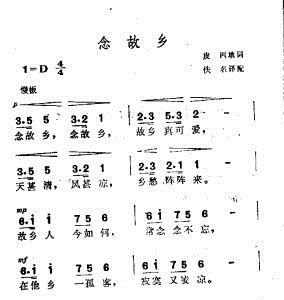 念故乡
1=D 4/4
皮 西填词
佚 名译配
慢板
p
3·5 5 3·2 1 | 2·3 5·3 2 - |
念故乡, 念故乡, 故乡真可爱,
3·5 5 3·2 1 | 2·3 2·1 1 - |
天甚清, 风甚凉, 乡愁阵阵来。
mp
6·i i 7 5 6 | 6 i 7 5 6 - |
故乡人 今如何, 常念念不忘,
mf
6·i i 7 5 6 | i 7 5 6 -
在他乡 一孤客, 寂寞又凄凉。